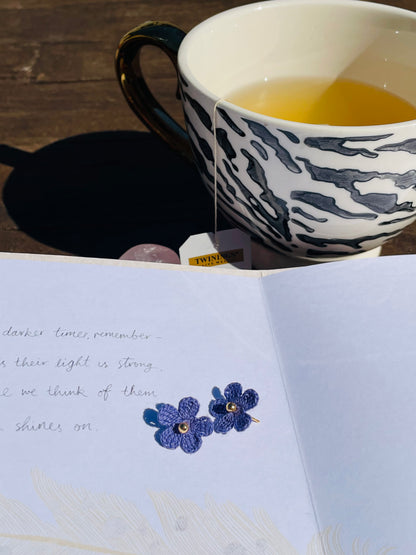 TWININGS
darker times, remember -
their light is strong.
we think of them
shines on.